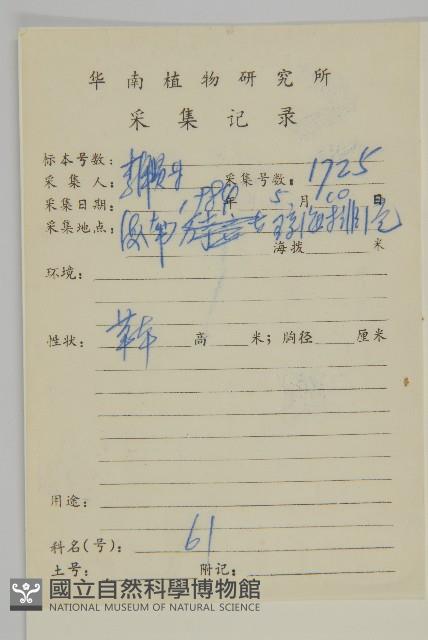 华南植物研究所
采集记录
标本号数：
采集人： 采集号数： 1725
采集日期： 年 5 月 日
采集地点：
海拔 米
环境：
性状： 草本 高 米；胸径 厘米
用途：
科名(号)： 61
土号： 附记：
國立自然科學博物館
NATIONAL MUSEUM OF NATURAL SCIENCE